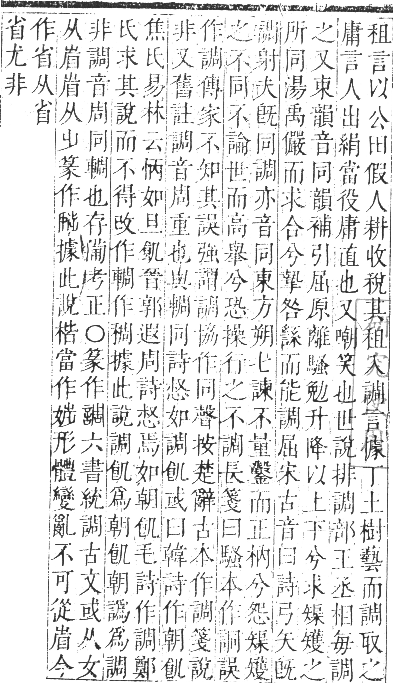 租言以公田假人耕收稅其租入調言據丁土樹藝而調取之
庸言人出絹當役庸直也又嘲笑也世說排調部王丞相每調
之又東韻音同韻補引屈原離騷勉升降以上下兮求榘矱之
所同湯禹儼而求合兮摯咎繇而能調屈宋古音曰詩弓矢旣
調射夫旣同調亦音同東方朔七諫不量鑿而正枘兮恐榘矱
之不同不論世而高舉兮恐操行之不調長箋曰騷本作詷誤
作調傳家不知其誤強謂調協作同聲按楚辭古本作調箋說
非又舊註調音周重也與輖同詩惄如調飢或曰韓詩作朝飢
焦氏易林云㤧如旦飢晉郭遐周詩惄焉如朝飢毛詩作調鄭
氏求其說而不得改作輖作䅵據此說調飢爲朝飢朝譌爲調
非調音周同輖也存備考正〇篆作調六書統調古文或从女
从㫯㫯从㞢篆作據此說楷當作形體變亂不可從㫯今
作省从省
省尤非